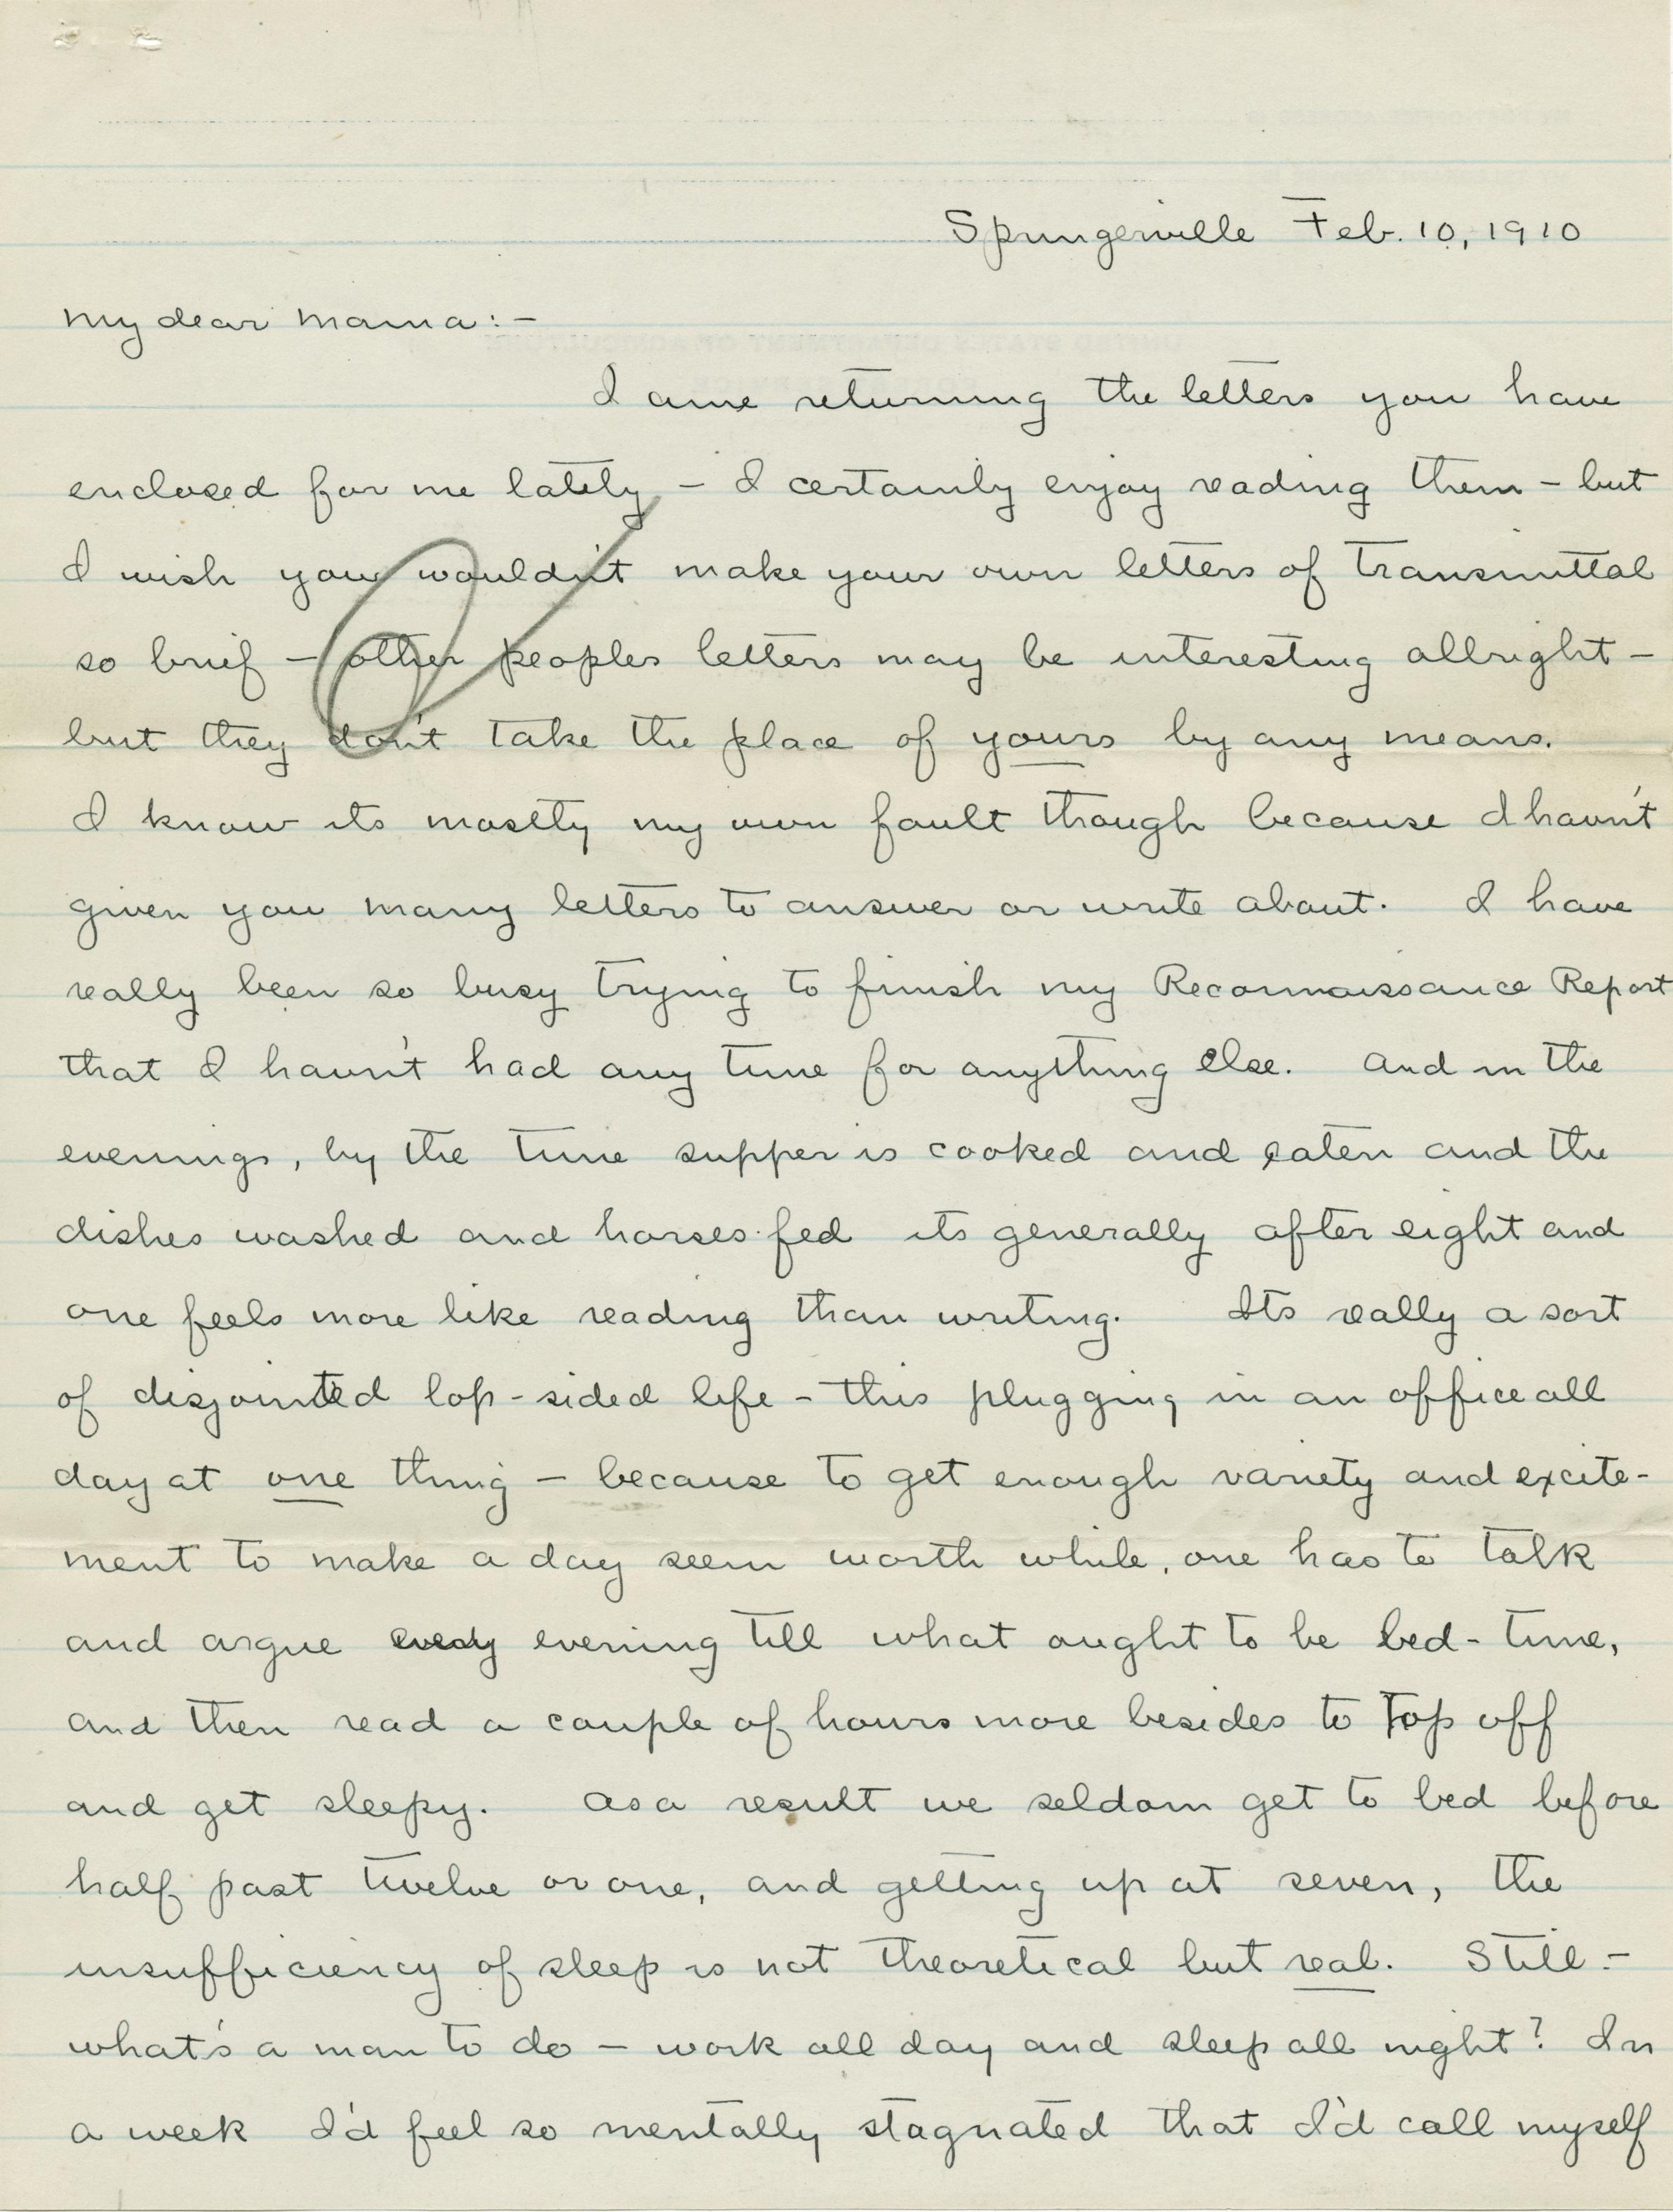 Springerville Feb. 10, 1910
My dear Mama:-
I am returning the letters you have
enclosed for me lately - I certainly enjoy reading them - but
I wish you wouldn't make your own letters of transmittal
so brief - other peoples letters may be interesting allright -
but they don't take the place of yours by any means.
I know its mostly my own fault though because I havn't
given you many letters to answer or write about. I have
really been so busy trying to finish my Reconnaissance Report
that I havn't had any time for anything else. And in the
evenings, by the time supper is cooked and eaten and the
dishes washed and horses fed its generally after eight and
one feels more like reading than writing. Its really a sort
of disjointed lop-sided life - this plugging in an office all
day at one thing - because to get enough variety and excite-
ment to make a day seem worth while, one has to talk
and argue every evening till what ought to be bed-time,
and then read a couple of hours more besides to top off
and get sleepy. As a result we seldom get to bed before
half past twelve or one, and getting up at seven, the
insufficiency of sleep is not theoretical but real. Still -
what's a man to do - work all day and sleep all night? In
a week I'd feel so mentally stagnated that I'd call myself